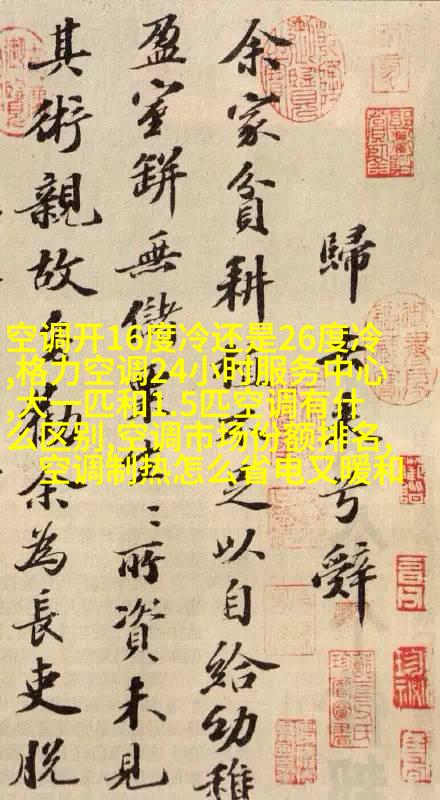 歸去來兮辭
余家貧耕植不足以自給幼稚
盈室缾無儲粟生〻所資未見
其術親故多勸余為長吏脫
空调开16度冷还是26度冷
,格力空调24小时服务中心
,大一匹和1.5匹空调有什
么区别,空调市场份额排名,
空调制热怎么省电又暖和